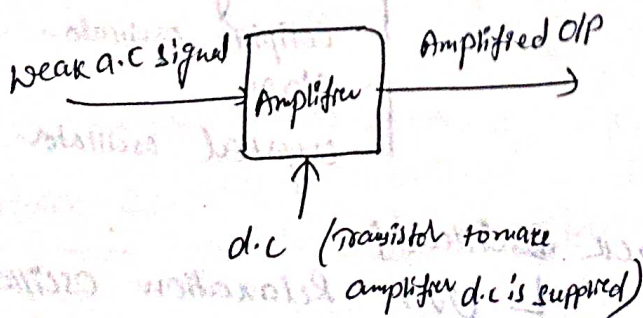 weak a.c signal
Amplified O/P
Amplifier
d.c (Transistor to make
amplifier d.c is supplied)